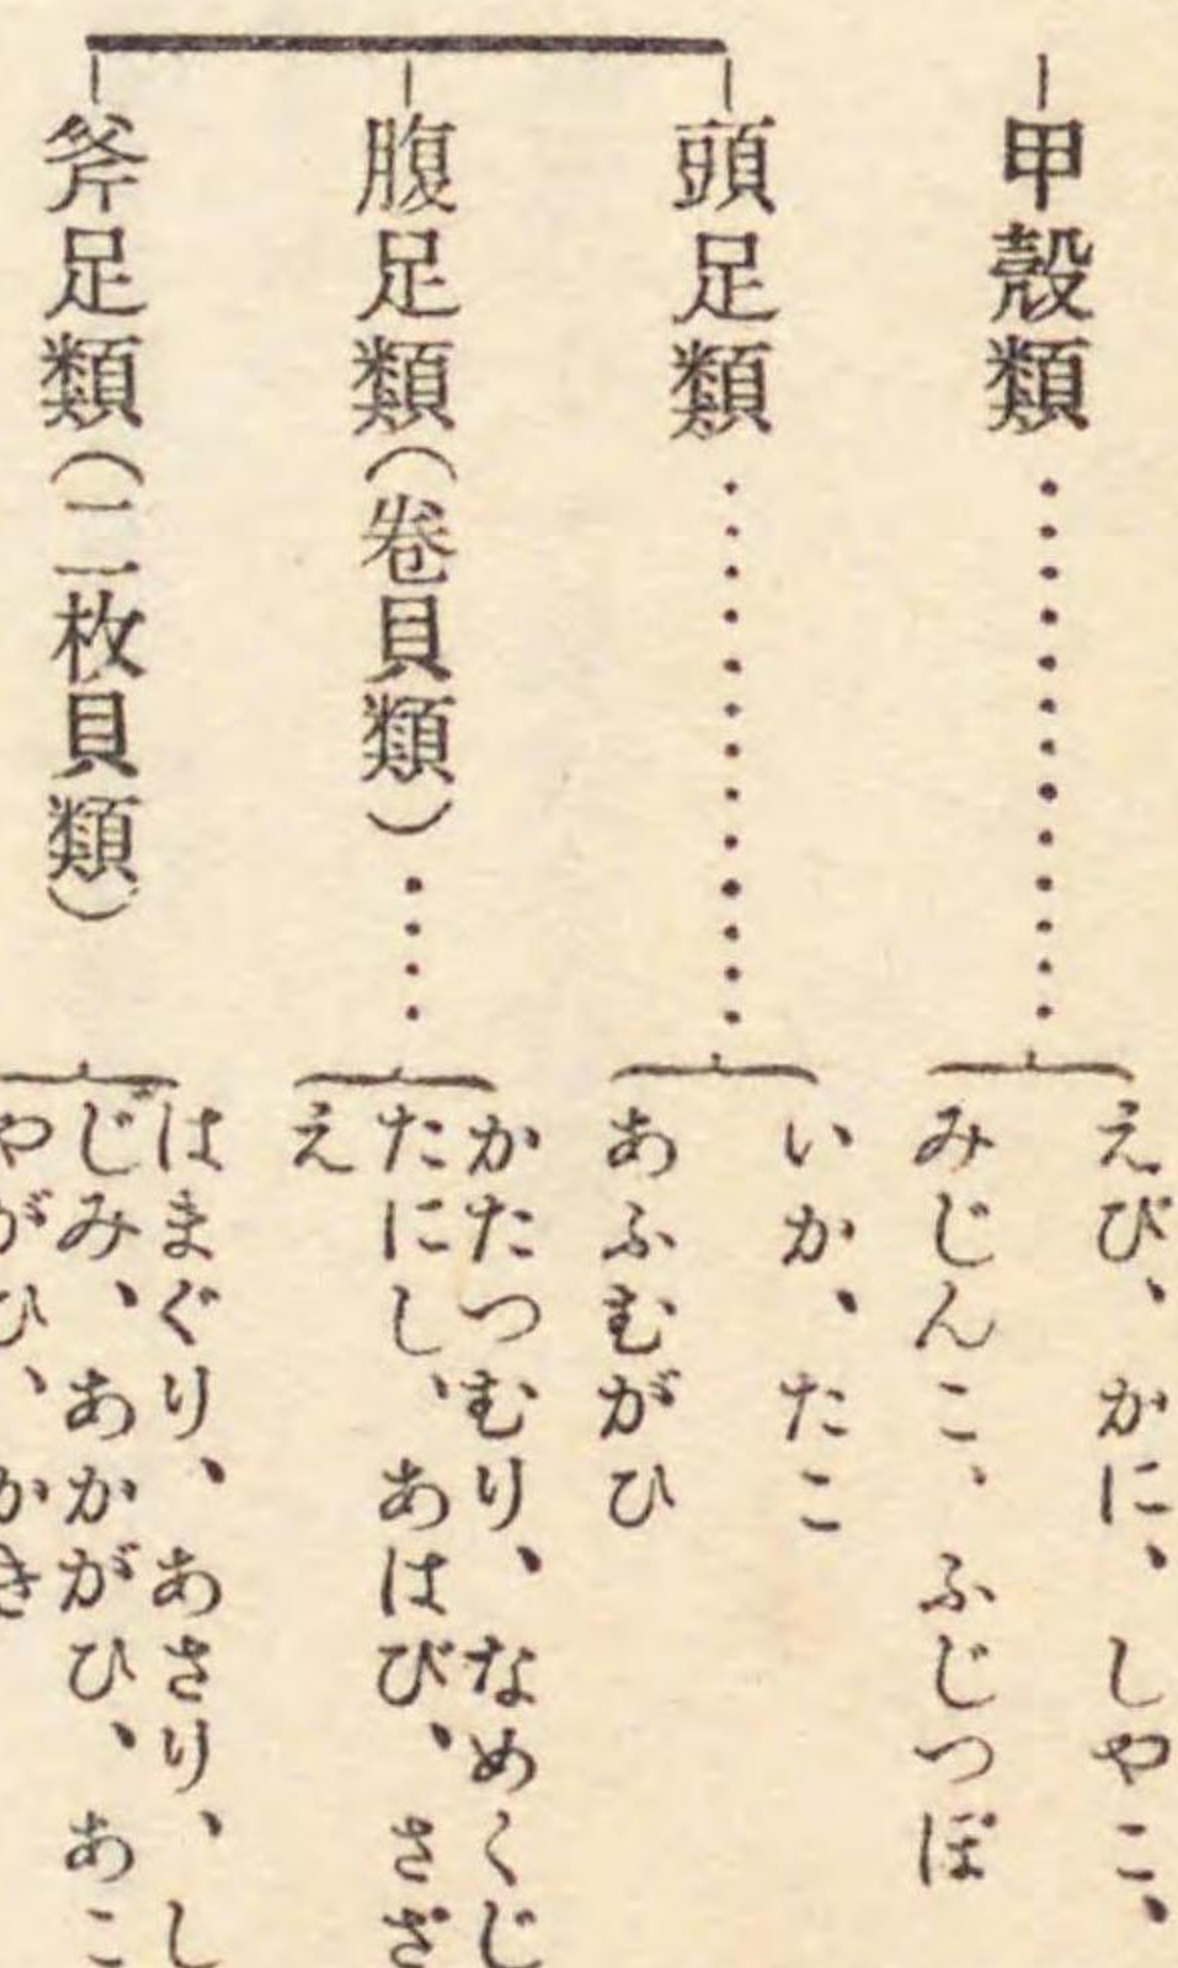 甲殼類…………
えび、かに、しやこ、
みじんこ、ふじつぼ
頭足類…………
いか、たこ
あふむがひ
腹足類(卷貝類)……
かたつむり、なめくじ
たにし、あはび、さざ
え
斧足類(二枚貝類)
はまぐり、あさり、し
じみ、あかがひ、あこ
やがひ、かき